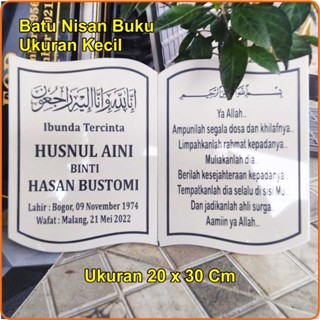 Batu Nisan Buku
Ukuran Kecil
إنا لله وإنا إليه راجعون
Ibunda Tercinta
HUSNUL AINI
BINTI
HASAN BUSTOMI
Lahir : Bogor, 09 November 1974
Wafat : Malang, 21 Mei 2022
Ya Allah..
Ampunilah segala dosa dan khilafnya..
Limpahkanlah rahmat kepadanya..
Muliakanlah dia..
Berilah kesejahteraan kepadanya..
Tempatkanlah dia selalu di sisi Mu..
Dan jadikanlah ahli surga..
Aamiin ya Allah..
Ukuran 20 x 30 Cm